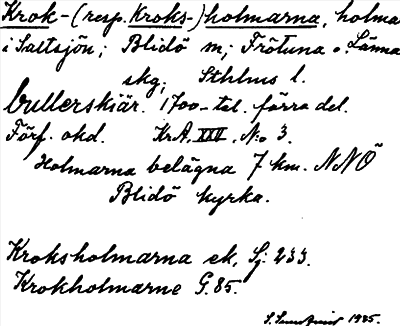 Krok-(resp. Kroks-)holmarna, holma
i Saltsjön; Blidö sn; Frötuna o. Länna
skg; Sthlms l.
bullerskiär. 1700-tal. förra del.
Förf. okd. KrA, XXII, No 3.
Holmarna belägna 7 km. NNÖ
Blidö kyrka.
Kroksholmarna ek, Sj. 233.
Krokholmarne G. 85.
1935.